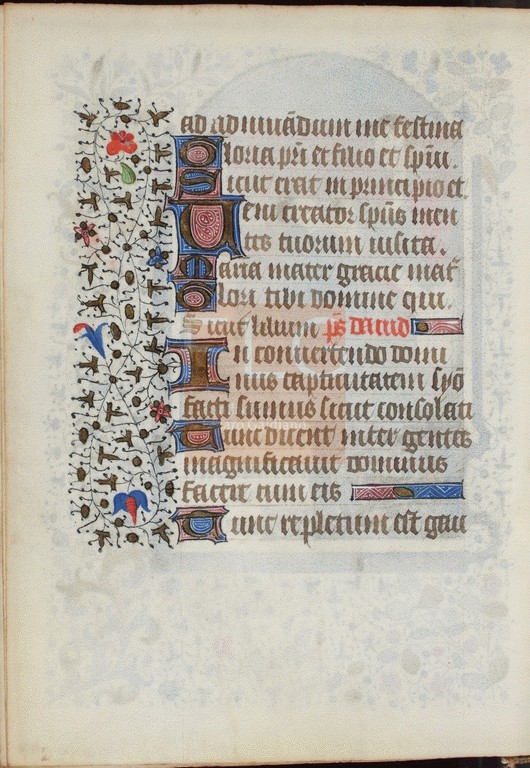 ad adiuuãdum me festina
Gloria pr̃i et filio et spũi.
Sicut erat in principio et
Ueni creator spũs men
tes tuorum uisita.
Maria mater gracie mat̃
Glori tibi domine qui.
Sicut lilium p̃s dauid
In conuertendo domi
nus captiuitatem syõ
facti sumus sicut consolati
Tunc dicent inter gentes
magnificauit dominus
facere cum eis
Tunc repletum est gau